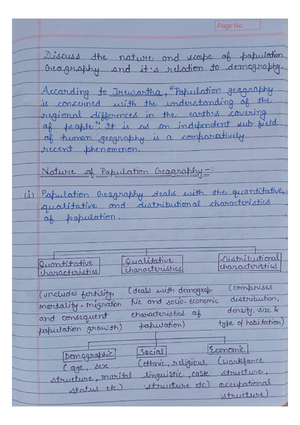 Page No.
Discuss the nature and scope of population
Geography and it's relation to demography.
According to Trewartha, "Population geography
is concerned with the understanding of the
regional differences in the earth's covering
of people". It is as an independent sub field
of human geography is a comparatively
recent phenomenon.
Nature of Population Geography :-
(i) Population Geography deals with the quantitative,
qualitative and distributional characteristics
of population.
Quantitative characteristics
Qualitative characteristics
Distributional characteristics
(includes fertility, mortality, migration and consequent population growth)
(deals with demographic and socio-economic characteristics of population)
(comprises distribution, density, size & type of habitation)
Demographic
(age, sex structure, marital status etc.)
Social
(ethnic, religious, linguistic, caste structure etc)
Economic
(workforce structure, occupational structure)